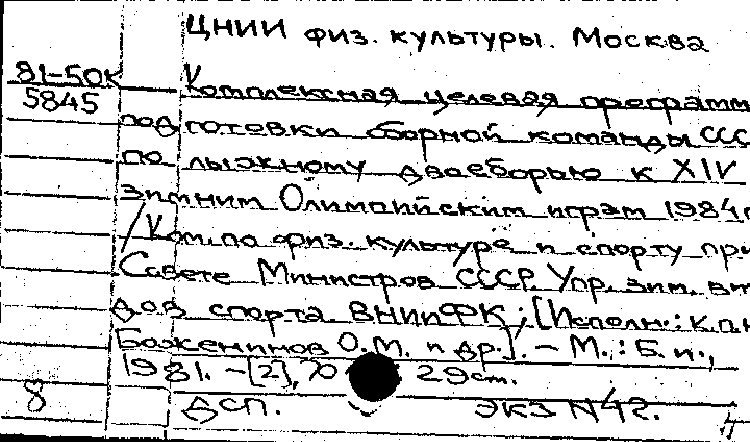 ЦНИИ физ. культуры. Москва
81-50К
5845
Комплексная целевая программ
подготовки сборной команды ССС
по лыжному двоеборью к XIV
зимним Олимпийским играм 1984г
/ Ком. по физ. культуре и спорту при
Совете Министров СССР. Упр. зим. ви
дов спорта ВНИИФК; [Исполн.: к.п.н
Баженинов О.М. и др.]. – М.: Б.и.,
1981. – [2], 70 29см.
8 ДСП. ЭКЗ N42.